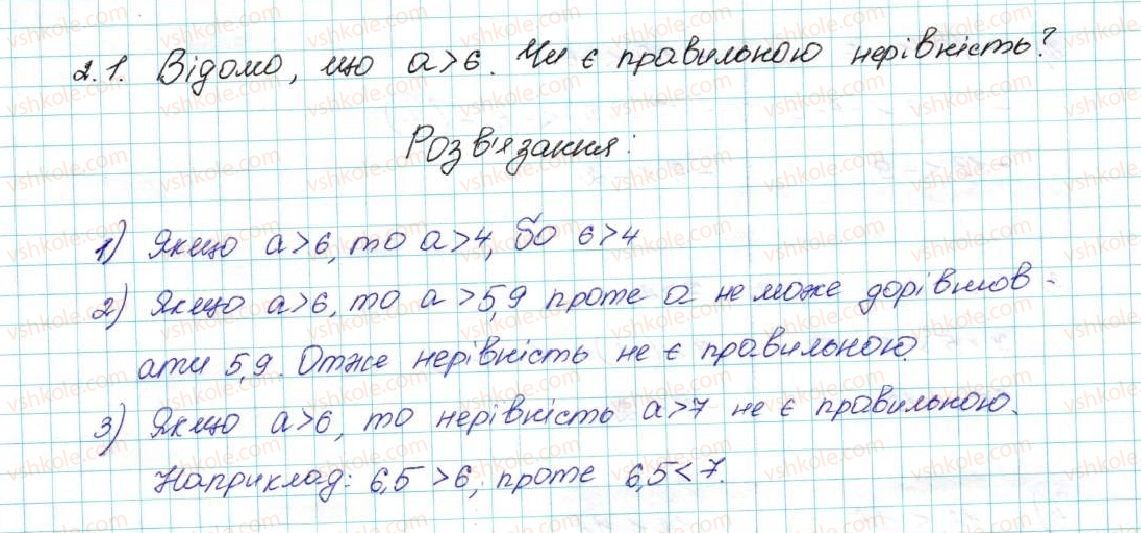 2.1. Відомо, що a>6. Чи є правильною нерівність?
Розв'язання:
1) Якщо a>6, то a>4, бо 6>4
2) Якщо a>6, то a>5,9 проте a не може дорівнюв-
ати 5,9. Отже нерівність не є правильною.
3) Якщо a>6, то нерівність a>7 не є правильною.
Наприклад: 6,5>6, проте 6,5<7.